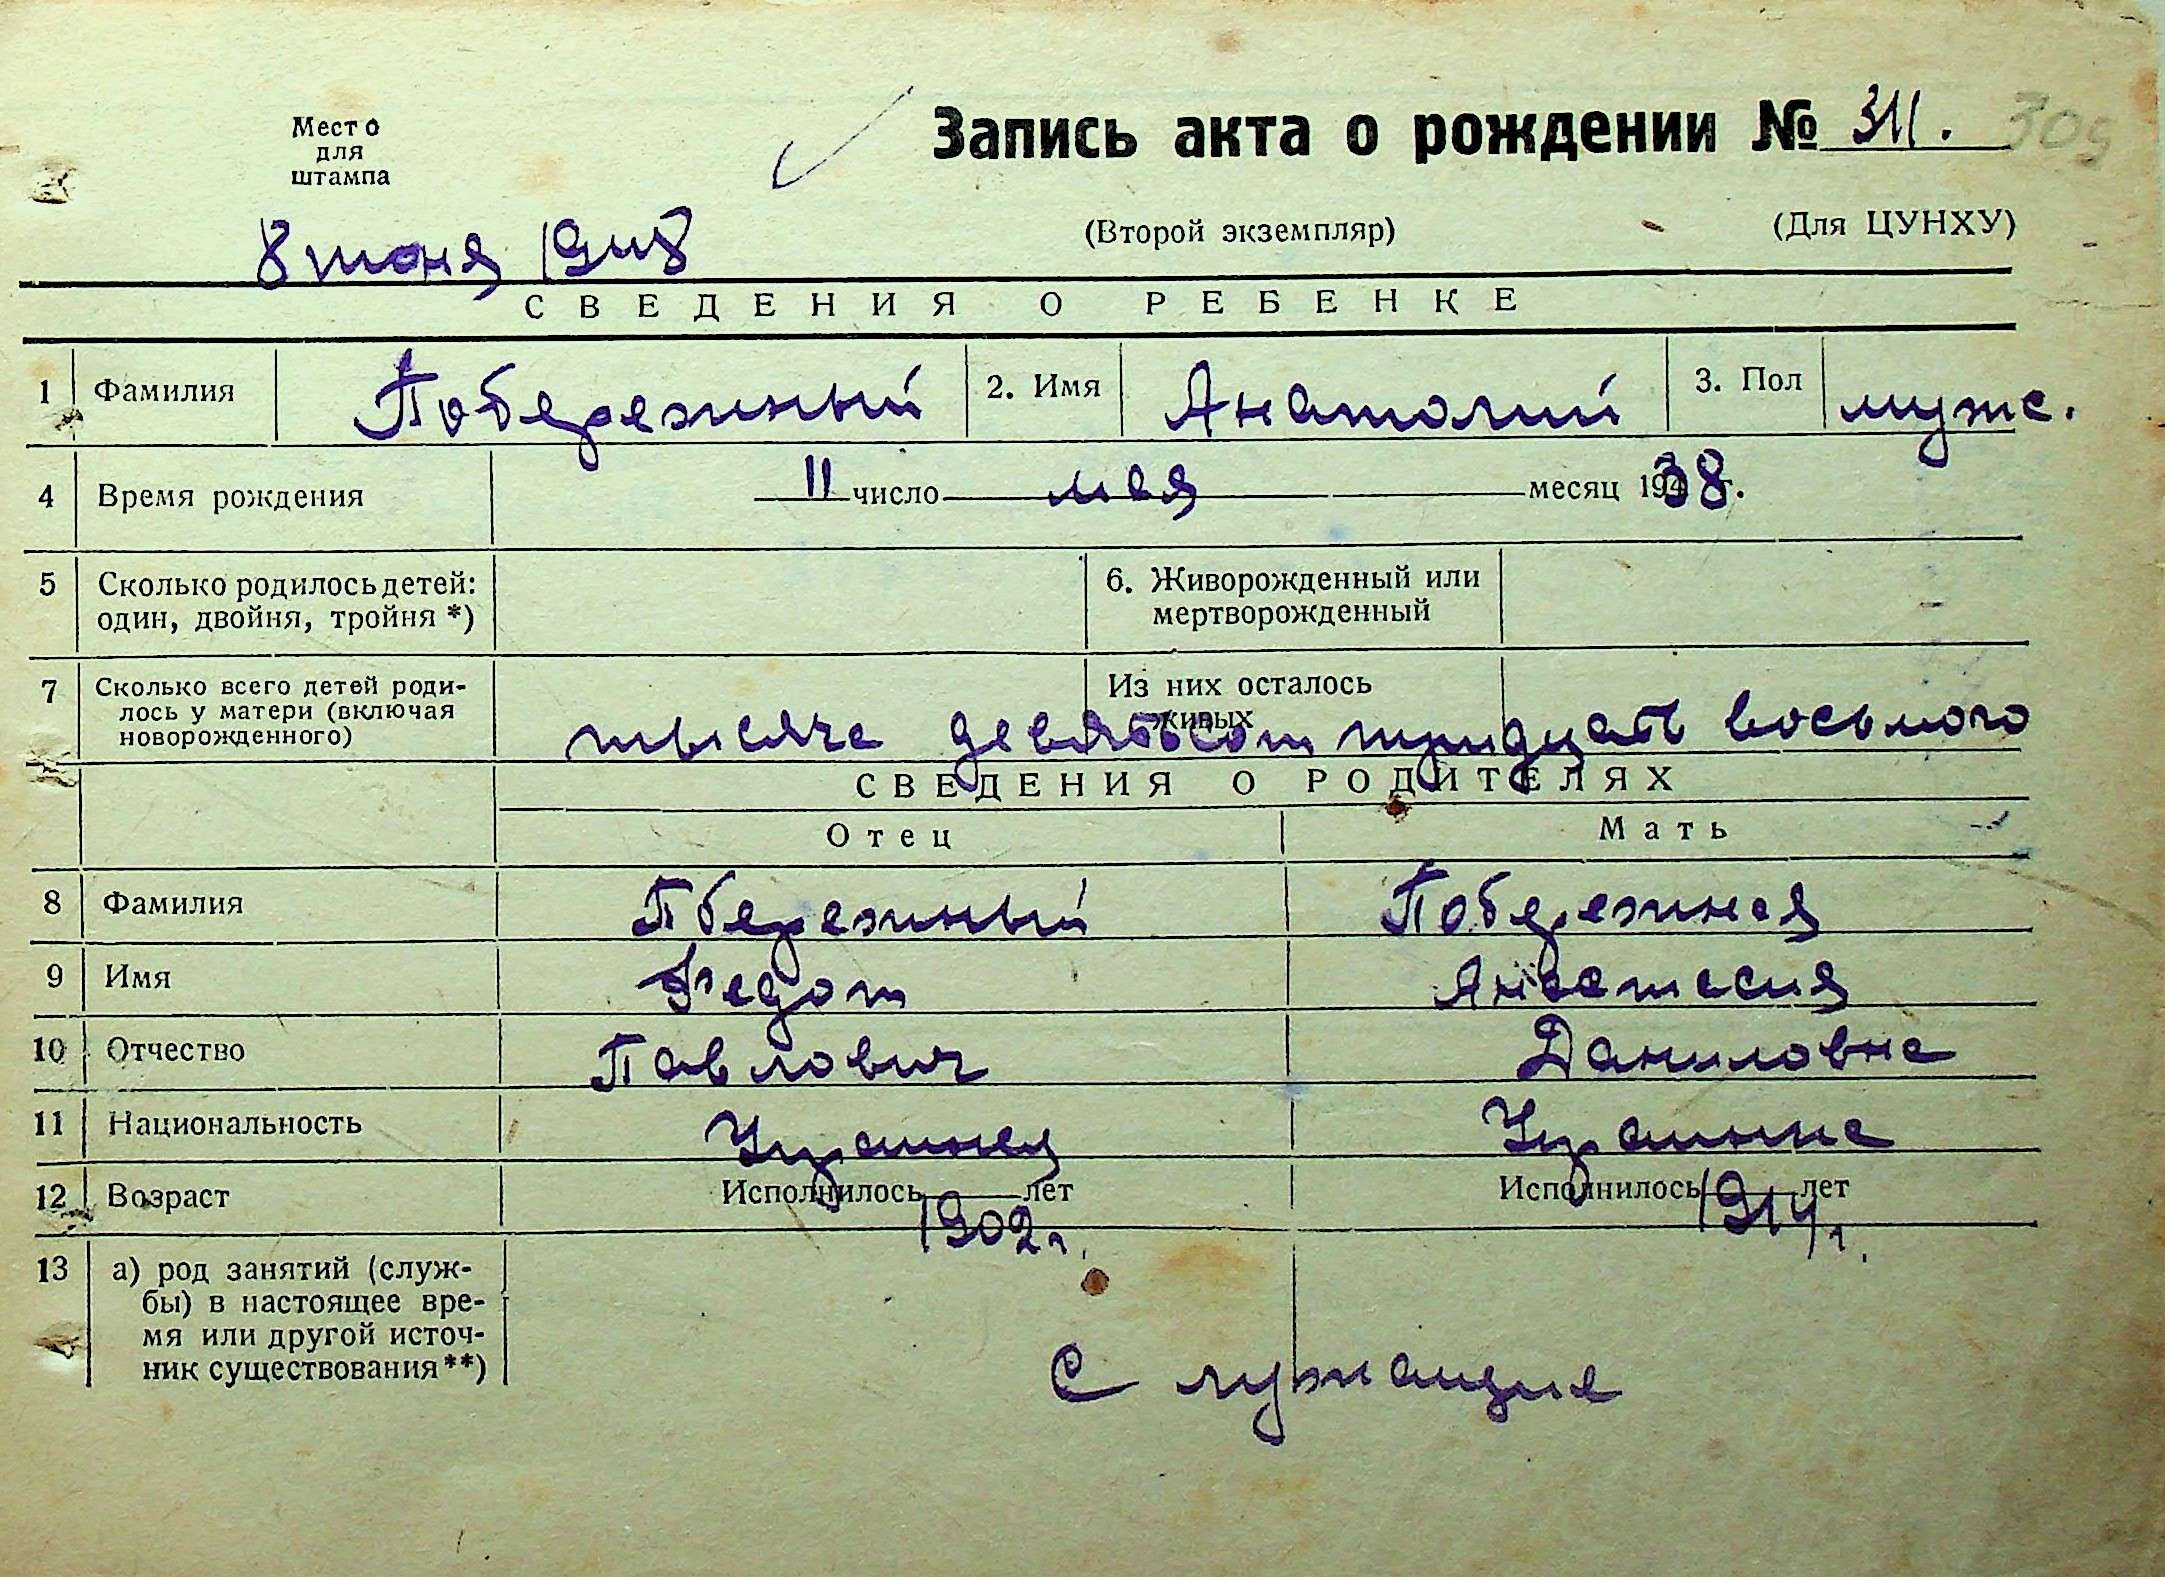 Место
для
штампа
Запись акта о рождении № 311. 309
8 июня 1948
(Второй экземпляр) (Для ЦУНХУ)
СВЕДЕНИЯ О РЕБЕНКЕ
1 Фамилия Побережный 2. Имя Анатолий 3. Пол муж.
4 Время рождения 11 число мая месяц 1938 г.
5 Сколько родилось детей: один, двойня, тройня *) 6. Живорожденный или мертворожденный
7 Сколько всего детей роди-
лось у матери (включая
новорожденного)
Из них осталось
живых
тысяча девятьсот тридцать восьмого
СВЕДЕНИЯ О РОДИТЕЛЯХ
Отец Мать
8 Фамилия Пбережный Побережная
9 Имя Федот Анастасия
10 Отчество Павлович Даниловна
11 Национальность
12 Возраст Исполнилось лет Исполнилось лет
1902 г. 1914 г.
13 а) род занятий (служ-
бы) в настоящее вре-
мя или другой источ-
ник существования**)
Служащие